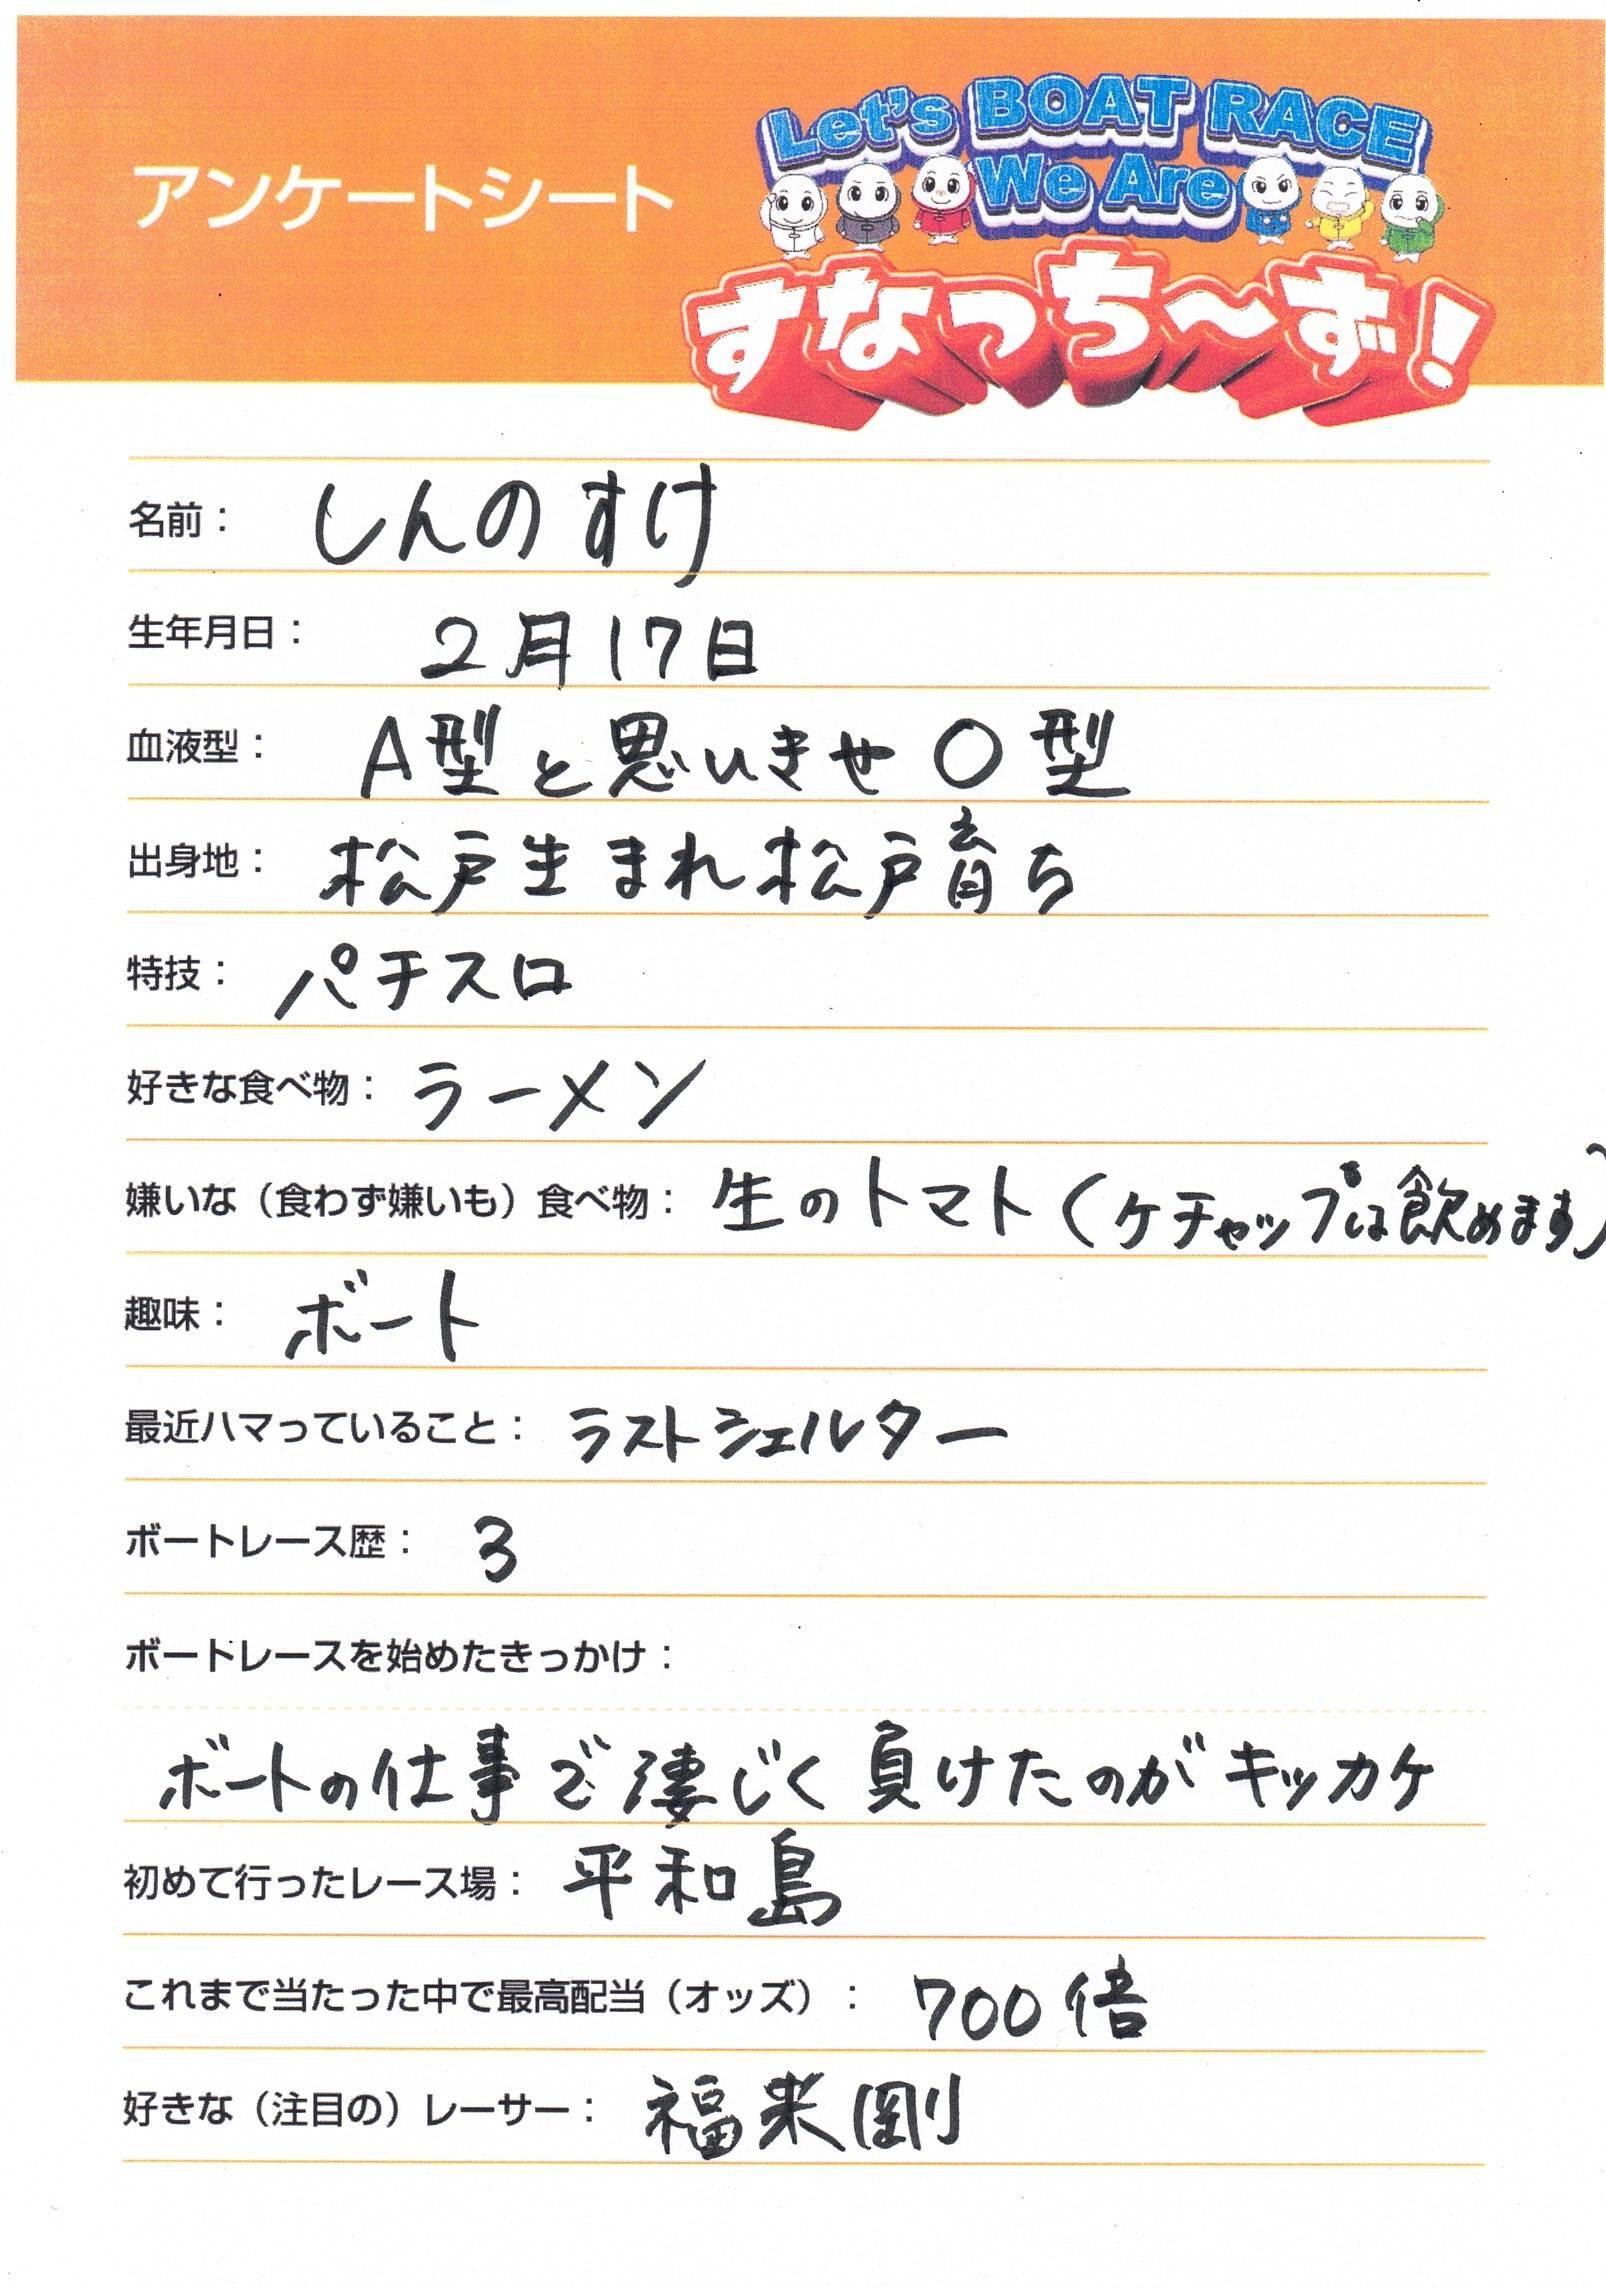 アンケートシート
Let's BOAT RACE
We Are
すなっち～ず！
名前： しんのすけ
生年月日： 2月17日
血液型： A型と思いきせO型
出身地： 松戸生まれ松戸育ち
特技： パチスロ
好きな食べ物： ラーメン
嫌いな（食わず嫌いも）食べ物： 生のトマト（ケチャップは飲めます）
趣味： ボート
最近ハマっていること： ラストシェルター
ボートレース歴： 3
ボートレースを始めたきっかけ：
ボートの仕事で凄じく負けたのがキッカケ
初めて行ったレース場： 平和島
これまで当たった中で最高配当（オッズ）： 700倍
好きな（注目の）レーサー： 福来剛